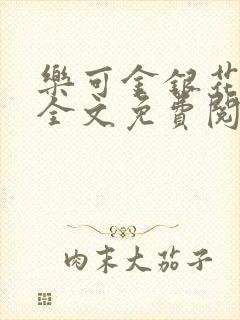 樂可金銀花
全文免費閱
肉末大茄子